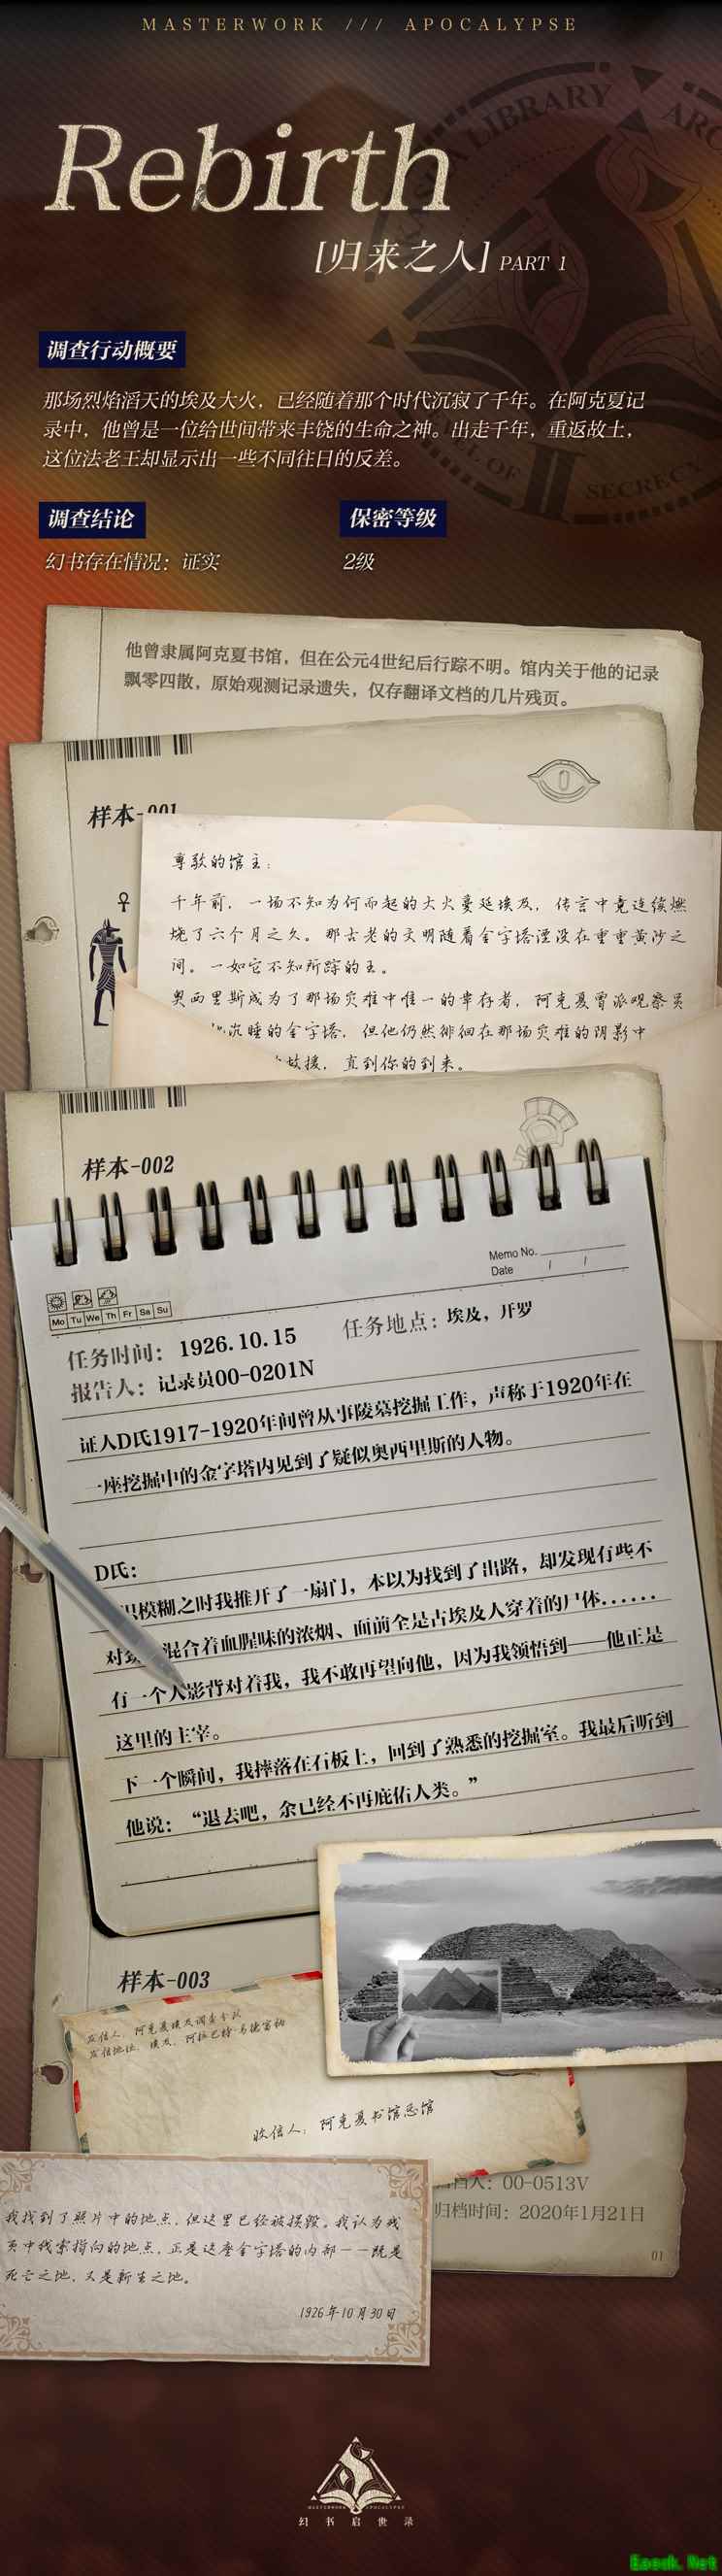 MASTERWORK /// APOCALYPSE
LIBRARY
Rebirth
[归来之人] PART 1
调查行动概要
那场烈焰滔天的埃及大火，已经随着那个时代沉寂了千年。在阿克夏记
录中，他曾是一位给世间带来丰饶的生命之神。出走千年，重返故土，
这位法老王却显示出一些不同往日的反差。
OF SECRECY
调查结论
保密等级
幻书存在情况：证实
2级
他曾隶属阿克夏书馆，但在公元4世纪后行踪不明。馆内关于他的记录
飘零四散，原始观测记录遗失，仅存翻译文档的几片残页。
样本-001
尊敬的馆主：
千年前，一场不知为何而起的大火蔓延埃及，传言中竟连续燃
烧了六个月之久。那古老的文明随着金字塔湮没在重重黄沙之
间。一如它不知所踪的王。
奥西里斯成为了那场灾难中唯一的幸存者，阿克夏曾派观察员
沉睡的金字塔，但他仍然徘徊在那场灾难的阴影中
救援，直到你的到来。
样本-002
Memo No.
Date / /
Mo Tu We Th Fr Sa Su
任务时间：1926.10.15
任务地点：埃及，开罗
报告人：记录员00-0201N
证人D氏1917-1920年间曾从事陵墓挖掘工作，声称于1920年在
一座挖掘中的金字塔内见到了疑似奥西里斯的人物。
D氏：
模糊之时我推开了一扇门，本以为找到了出路，却发现有些不
对 混合着血腥味的浓烟、面前全是古埃及人穿着的尸体......
有一个人影背对着我，我不敢再望向他，因为我领悟到——他正是
这里的主宰。
下一个瞬间，我摔落在石板上，回到了熟悉的挖掘室。我最后听到
他说：“退去吧，余已经不再庇佑人类。”
样本-003
发信人：阿克夏埃及调查分队
发信地址：埃及，阿拉巴特·马德富纳
收信人：阿克夏书馆总馆
人：00-0513V
归档时间：2020年1月21日
01
我找到了照片中的地点，但这里已经被摧毁。我认为残
页中线索指向的地点，正是这座金字塔的内部——既是
死亡之地，又是新生之地。
1926年10月30日
MASTERWORK APOCALYPSE
幻书启世录